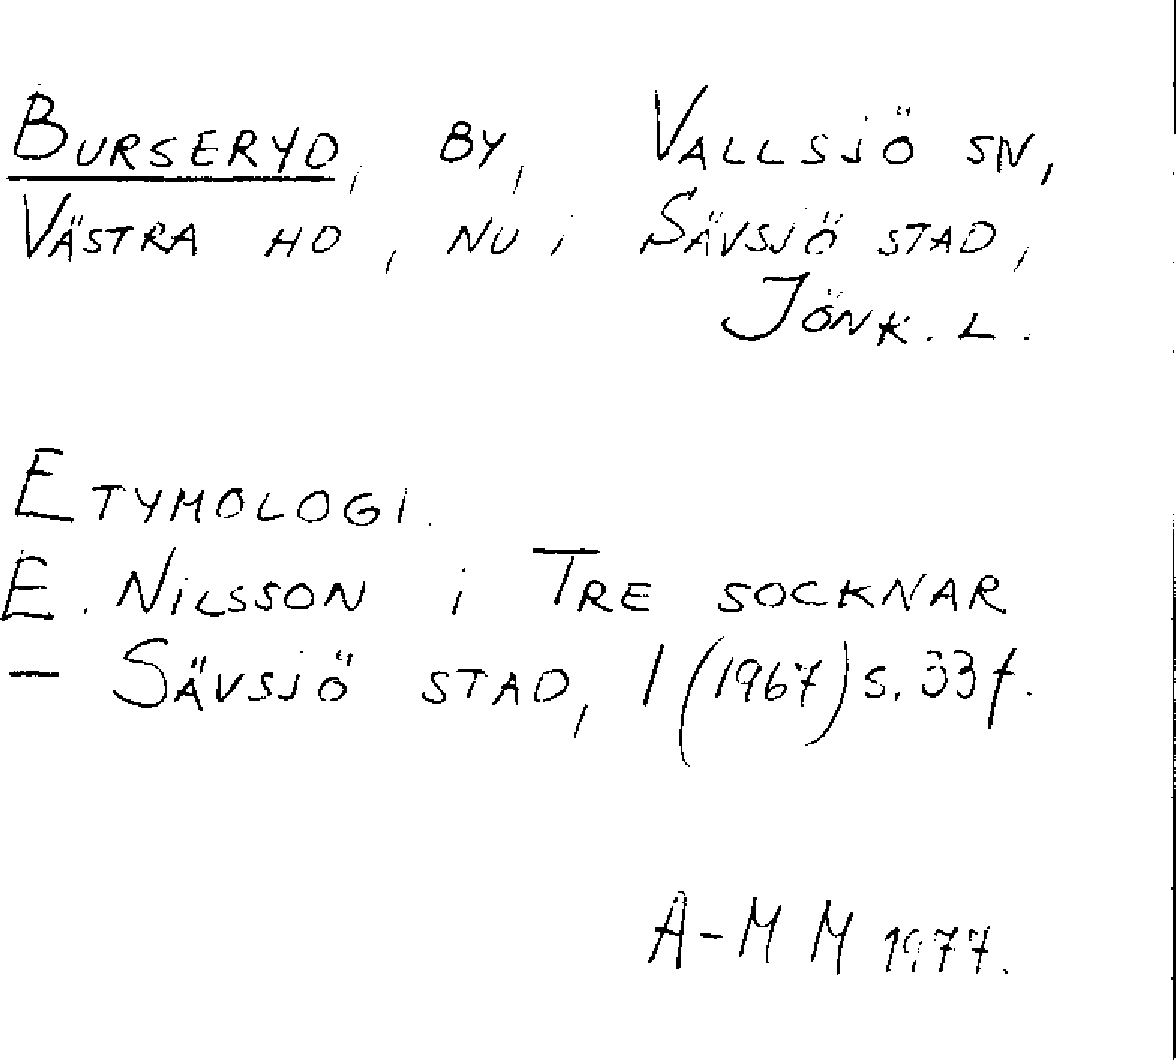 BURSERYD, BY, VALLSJÖ SN,
VÄSTRA HD, NU i SÄVSJÖ STAD,
JÖNK. L.
ETYMOLOGI.
E. NILSSON i TRE SOCKNAR
— SÄVSJÖ STAD, 1 (1967) s. 33 f.
A-M M 1977.